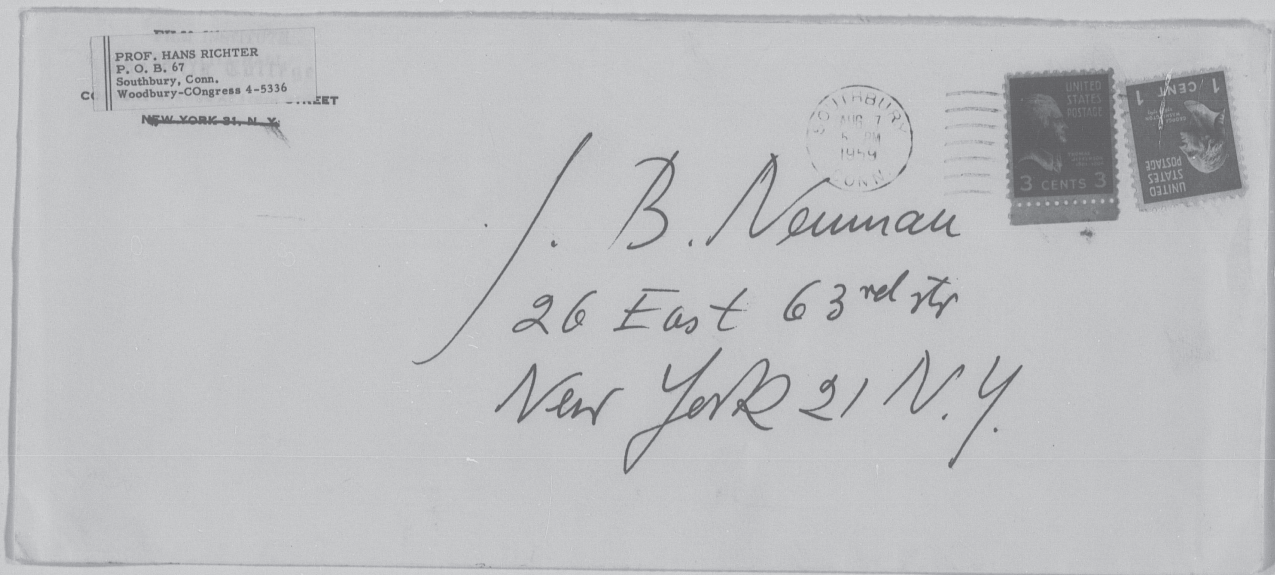 PROF. HANS RICHTER
P. O. B. 67
Southbury, Conn.
Woodbury-COngress 4-5336
STREET
NEW YORK 21, N. Y.
SOUTHBURY
AUG 7
PM
1959
CONN.
UNITED
STATES
POSTAGE
3 CENTS 3
1 CENT 1
UNITED
STATES
POSTAGE
J. B. Neuman
26 East 63rd str
New York 21 N.Y.